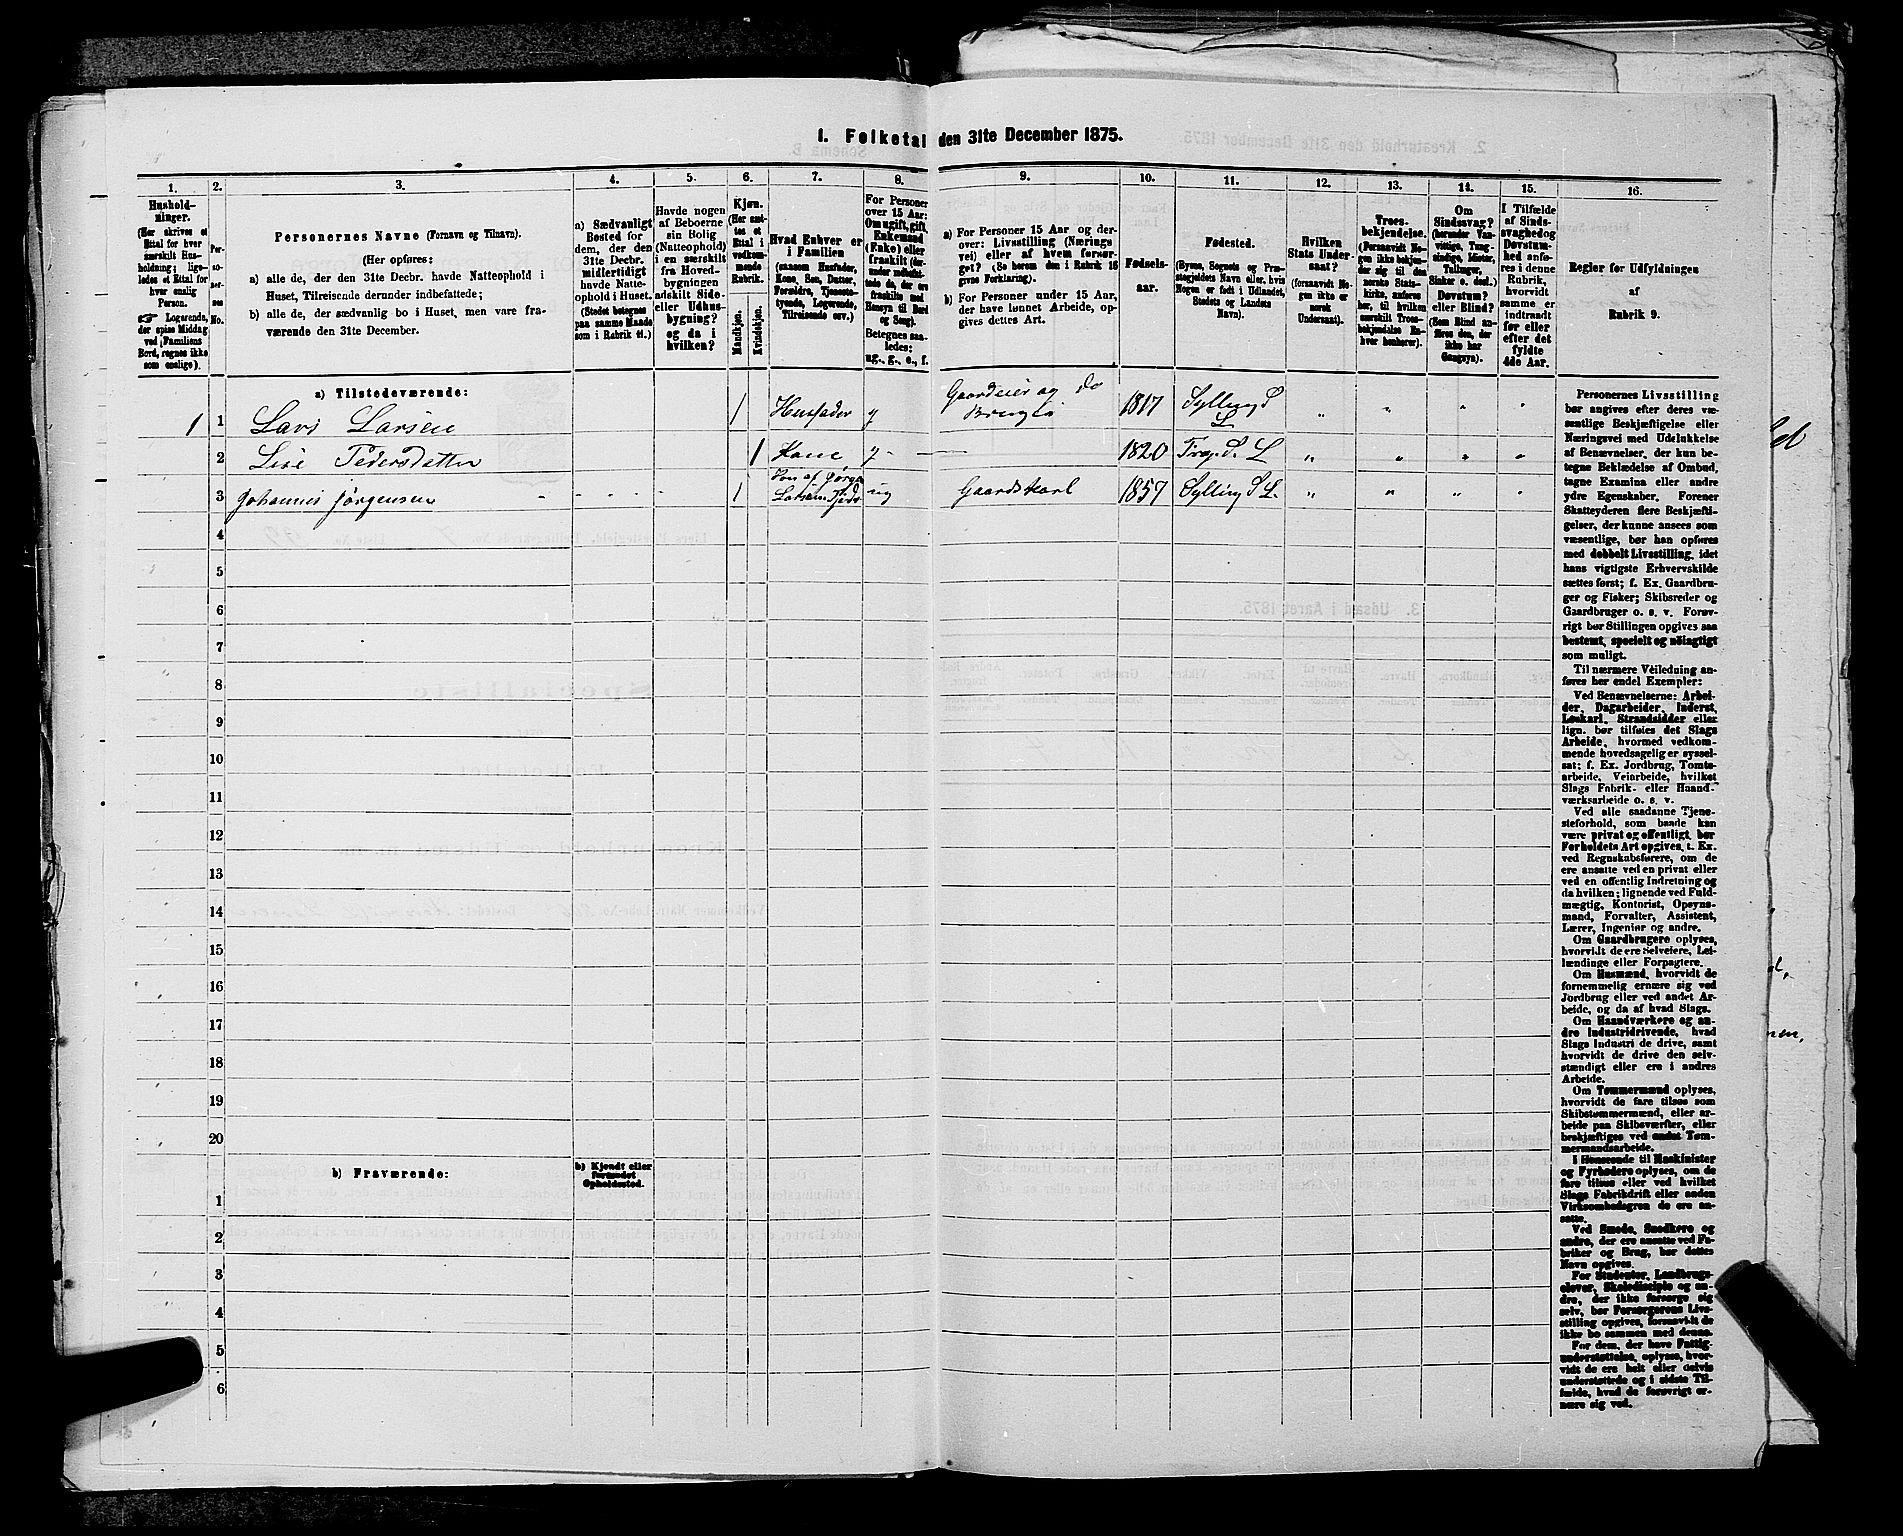 I. Folketal den 31te December 1875.
1. 2. 3. 4. 5. 6. 7. 8. 9. 10. 11. 12. 13. 14. 15. 16.
Hushold-
ninger.
(Her skrives et
Ettal for hver
særskilt Hus-
holdning; lige-
ledes et Ettal for
hver enslig
Person.
☞ Logerende,
der spise Middag
ved Familiens
Bord, regnes ikke
som enslige).
Per-
so-
ner-
nes
No.
Personernes Navne (Fornavn og Tilnavn).
(Her opføres:
a) alle de, der den 31te Decbr. havde Natteophold i
Huset, Tilreisende derunder indbefattede;
b) alle de, der sædvanlig bo i Huset, men vare fra-
værende den 31te December.
a) Sædvanligt
Bosted for
dem, der den
31te Decbr.
midlertidigt
havde Natte-
ophold i Huset.
(Stedet betegnes
paa samme Maade
som i Rubrik 11.)
Havde nogen
af Beboerne
sin Bolig
(Natteophold)
i en særskilt
fra Hoved-
bygningen
adskilt Side-
eller Udhus-
bygning?
og da i
hvilken?
Kjøn.
(Her sæt-
tes et
Ettal i
vedkom-
mende
Rubrik.
Mandkjøn.
Kvindekjøn.
Hvad Enhver er
i Familien
(saasom Husfader,
Kone, Søn, Datter,
Forældre, Tjeneste-
tyende, Logerende,
Tilreisende osv.)
For Personer
over 15 Aar:
Om ugift, gift,
Enkemand
(Enke) eller
fraskilt (der-
under indbefat-
tede de, der ere
fraskilte med
Hensyn til Bord
og Seng).
Betegnes saa-
ledes:
ug., g., e., f.
a) For Personer 15 Aar og der-
over: Livsstilling (Nærings
vei) eller af hvem forsør-
get? (Se herom den i Rubrik 16
givne Forklaring).
b) For Personer under 15 Aar,
der have lønnet Arbeide, op-
gives dettes Art.
Fødsels-
aar.
Fødested.
(Byens, Sognets og Præ-
stegjeldets Navn eller, hvis
Nogen er født i Udlandet,
Stedets og Landets
Navn).
Hvilken
Stats Under-
saat?
(forsaavidt No-
gen ikke er
norsk
Undersaat).
Troes-
bekjendelse.
(Forsaavidt No-
gen ikke bekjen-
der sig til den
norske Stats-
kirke, anføres
her, til hvilken
særskilt Troes-
bekjendelse En-
hver henhører).
Om
Sindssvag?
(herunder Van-
vittige, Tung-
sindige, Idioter,
Tullinger,
Sinker o. desl.)
Døvstum?
eller Blind?
(Som Blind an-
føres den, der
ikke har
Gangsyn).
I Tilfælde
af Sinds-
svaghed og
Døvstum-
hed anfø-
res i denne
Rubrik,
hvorvidt
samme er
indtraadt
før eller
efter det
fyldte
4de Aar.
Regler for Udfyldningen
af
Rubrik 9.
a) Tilstedeværende:
1 1 Lars Larsen 1 Husfader g Gaardeier og do Bruger 1817 Sylling S L „ „ „ „
2 Lise Pedersdatter 1 Kone g 1820 S. L „ „ „ „
3 Johannes Jørgensen 1 ug Gaardskarl 1857 Sylling S L. „ „ „ „
4
5
6
7
8
9
10
11
12
13
14
15
16
17
18
19
20
b) Fraværende:
b) Kjendt eller
formodet
Opholdssted.
1
2
3
4
5
6
Personernes Livsstilling
bør angives efter deres væ-
sentlige Beskjæftigelse eller
Næringsvei med Udelukkelse
af Benævnelser, der kun be-
tegne Beklædelse af Ombud,
tagne Examina eller andre
ydre Egenskaber. Forener
Skatteyderen flere Beskjæfti-
gelser, der kunne ansees som
væsentlige, bør han opføres
med dobbelt Livsstilling, idet
hans vigtigste Erhvervskilde
sættes først; f. Ex. Gaardbru-
ger og Fisker; Skibsreder og
Gaardbruger o. s. v. Forøv-
rigt bør Stillingen opgives saa
bestemt, specielt og nöiagtigt
som muligt.
Til nærmere Veiledning an-
føres her endel Exempler:
Ved Benævnelserne: Arbei-
der, Dagarbeider, Inderst,
Løskarl, Strandsidder eller
lign. bør tilføies det Slags
Arbeide, hvormed vedkom-
mende hovedsagelig er syssel-
sat; f. Ex. Jordbrug, Tomte-
arbeide, Veiarbeide, hvilket
Slags Fabrik- eller Haand-
værksarbeide o. s. v.
Ved alle saadanne Tjene-
steforhold, som baade kan
være privat og offentligt, bør
Forholdets Art opgives, t. Ex.
ved Regnskabsførere, om de
ere ansatte ved en privat eller
ved en offentlig Indretning og
da hvilken; lignende ved Fuld-
mægtig, Kontorist, Opsyns-
mand, Forvalter, Assistent,
Lærer, Ingeniør og andre.
Om Gaardbrugere oplyses,
hvorvidt de ere Selveiere, Lei-
lændinge eller Forpagtere.
Om Husmænd, hvorvidt de
fornemmelig ernære sig ved
Jordbrug eller ved andet Ar-
beide, og da af hvad Slags.
Om Haandværkere og an-
dre Industridrivende, hvad
Slags Industri de drive, samt
hvorvidt de drive den selv-
stændigt eller ere i andres
Arbeide.
Om Tømmermænd oplyses,
hvorvidt de fare tilsøs som
Skibstømmermænd, eller ar-
beide paa Skibsværfter, eller
beskjæftiges ved andet Tøm-
mermandsarbeide.
I Henseende til Maskinister
og Fyrbødere oplyses, om de
fare tilsøs eller ved hvilket
Slags Fabrikdrift eller anden
Virksomhedsgren de ere an-
satte.
Ved Smede, Snedkere og
andre, der ere ansatte ved Fa-
briker og Brug, bør dettes
Navn opgives.
For Studenter, Landbrugs-
elever, Skoledisciple og an-
dre, der ikke forsørge sig
selv, bør Forsørgerens Livs-
stilling opgives, forsaavidt de
ikke bo sammen med denne.
For dem, der have Fattig-
understøttelse, oplyses, hvor-
vidt de ere helt eller delvis
understøttede og i sidste Til-
fælde, hvad de forøvrigt er-
nære sig ved.